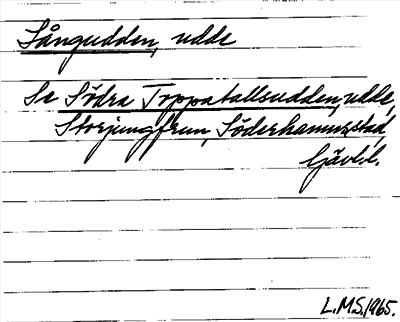 Långudden, udde
Se Södra Toppatallsudden, udde,
Storjungfrun, Söderhamns stad,
Gävl.l.
L.M.S. 1965.